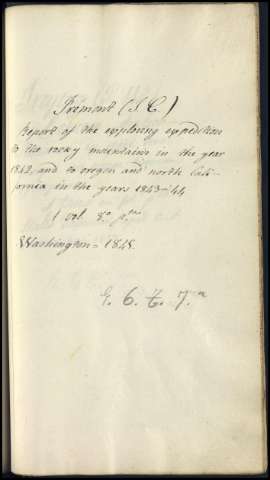 Fremont (J. C.)
Report of the exploring expedition
to the rocky mountains in the year
1842, and to oregon and north Cali-
fornia in the years 1843-44
1 vol. 8.º
Washington = 1845.
6. 7.